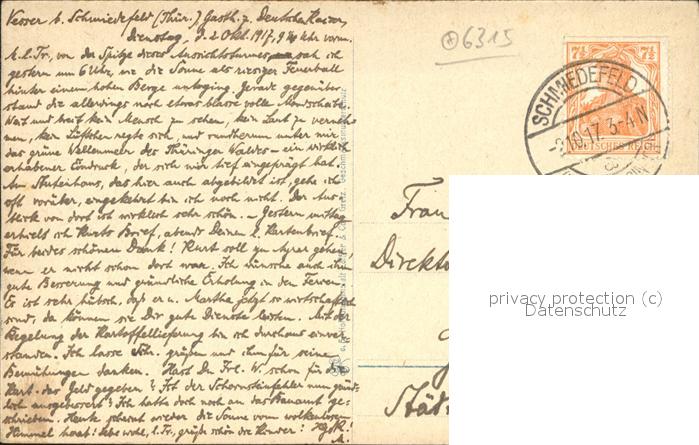 Vesser b. Schmiedefeld (Thür.) Gasth. z. Deutschen Kaiser,
Dienstag, d. 2. Okt. 1917, 9¼ Uhr vorm.
M. l. Fr., von der Spitze dieses Aussichtsturmes sah ich
gestern um 6 Uhr, wie die Sonne als riesiger Feuerball
hinter einem hohen Berge unterging. Gerade gegenüber
stand die allerdings noch etwas blasse volle Mondscheibe.
Weit und breit kein Mensch zu sehen, kein Laut zu verneh-
men, kein Lüftchen regte sich, und rundherum unter mir
das grüne Wellenmeer des Thüringer Waldes – ein wirklich
erhabener Eindruck, der sich mir tief eingeprägt hat.
Am Stutenhaus, das hier auch abgebildet ist, gehe ich
oft vorüber, eingekehrt bin ich noch nicht. Der Aus-
blick von dort ist wirklich sehr schön. – Gestern mittag
erhielt ich Kurts Brief, abends Deinen 2. Kartenbrief.
Für beides schönen Dank! Kurt soll zu gehen,
wenn er nicht schon dort war. Ich wünsche auch ihm
gute Besserung und gründliche Erholung in den Ferien.
Es ist sehr hübsch, daß er u. Martha jetzt so wirtschaftlich
sind, da können sie Dir gute Dienste leisten. Mit der
Regelung der Kartoffellieferung bin ich durchaus einver-
standen. Ich lasse grüßen und ihm für seine
Bemühungen danken. Hast Du Frl. W. schon für die
Kart. das Geld gegeben? Ist der Schornsteinfehler nun gründ-
lich ausgebessert? Ich hatte doch noch an das Bauamt ge-
schrieben. Heute scheint wieder die Sonne vom wolkenlosen
Himmel herab! Lebe wohl, l. Fr., grüße schön die Kinder!
6315
7½ 7½
DEUTSCHES REICH
SCHMIEDEFELD
2.10.17. 3-4 N
Frau
Direkto
Städ
privacy protection (c)
Datenschutz